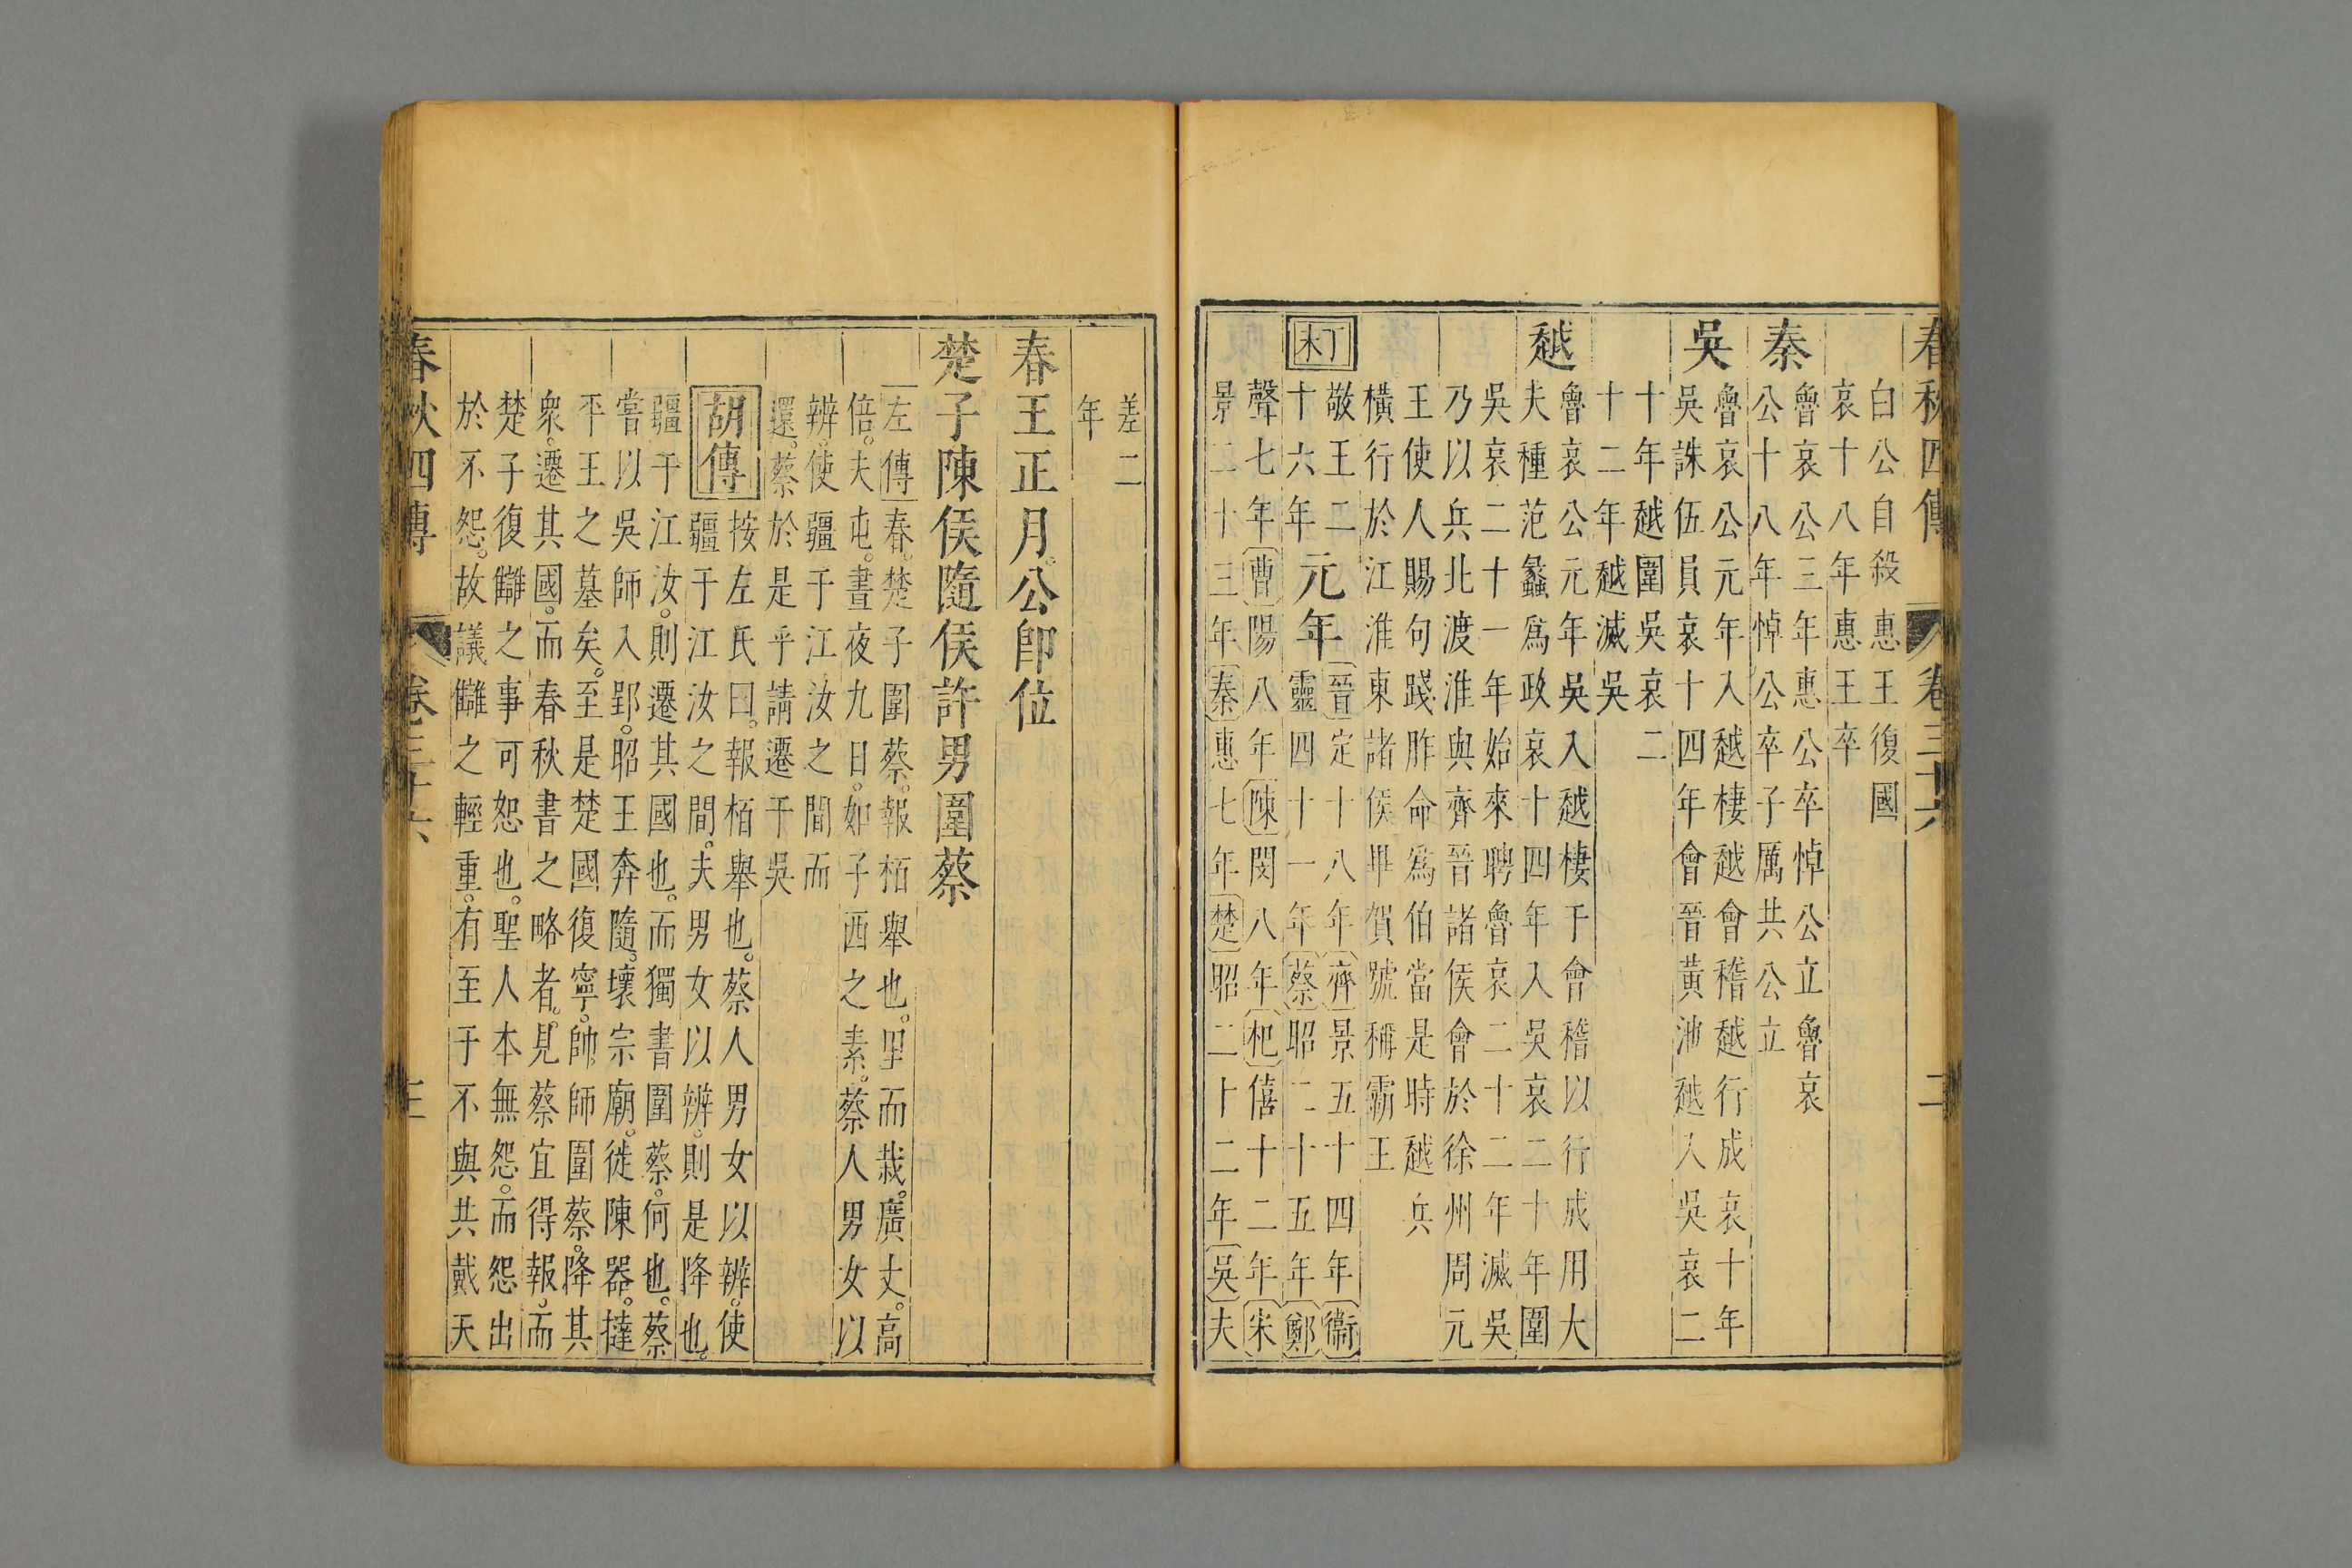 春秋四傳 卷三十六 二
白公自殺惠王復國
哀十八年惠王卒
秦
魯哀公三年惠公卒悼公立魯哀
公十八年悼公卒子厲共公立
吳
魯哀公元年入越棲越會稽越行成哀十年
吳誅伍員哀十四年會晉黃池越入吳哀二
十年越圍吳哀二
十二年越滅吳
越
魯哀公元年吳入越棲于會稽以行成用大
夫種范蠡爲政哀十四年入吳哀二十年圍
吳哀二十一年始來聘魯哀二十二年滅吳
乃以兵北渡淮與齊晉諸侯會於徐州周元
王使人賜句踐胙命爲伯當是時越兵
橫行於江淮東諸侯畢賀號稱霸王
丁未
敬王二
十六年
元年
晉定十八年齊景五十四年衞
靈四十一年蔡昭二十五年鄭
聲七年曹陽八年陳閔八年杞僖十二年宋
景二十三年秦惠七年楚昭二十二年吳夫
差二
年
春王正月公卽位
楚子陳侯隨侯許男圍蔡
左傳春楚子圍蔡報栢舉也里而栽廣丈高
倍夫屯晝夜九日如子西之素蔡人男女以
辨使疆于江汝之間而
還蔡於是乎請遷于吳
胡傳
按左氏曰報栢舉也蔡人男女以辨使
疆于江汝之間夫男女以辨則是降也
疆于江汝則遷其國也而獨書圍蔡何也蔡
嘗以吳師入郢昭王奔隨壞宗廟徙陳器撻
平王之墓矣至是楚國復寧帥師圍蔡降其
衆遷其國而春秋書之略者見蔡宜得報而
楚子復讎之事可恕也聖人本無怨而怨出
於不怨故議讎之輕重有至于不與共戴天
春秋四傳 卷三十六 三